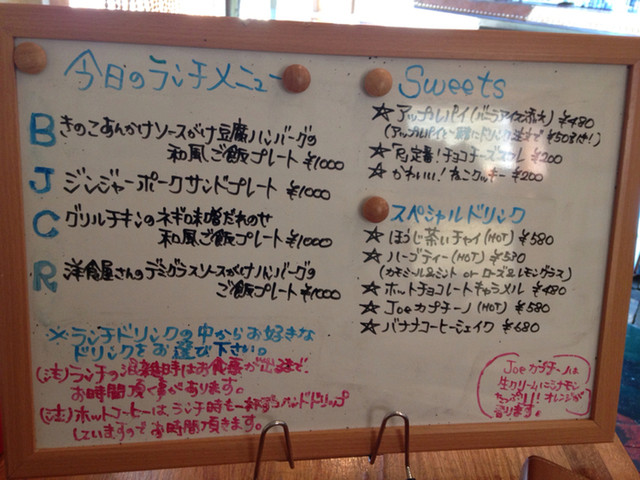 今日のランチメニュー
B きのこあんかけソースがけ豆腐ハンバーグの
和風ご飯プレート ¥1000
J ジンジャーポークサンドプレート ¥1000
C グリルチキンのネギ味噌だれのせ
和風ご飯プレート ¥1000
R 洋食屋さんのデミグラスソースがけハンバーグの
ご飯プレート ¥1000
※ランチドリンクの中からお好きな
ドリンクをお選び下さい。
(注)ランチの混雑時はお食事が出るまで、
お時間頂く事があります。
(注)ホットコーヒーはランチ時も一杯ずつハンドドリップ
していますのでお時間頂きます。
Sweets
☆ アップルパイ(バニラアイス添え) ¥480
(アップルパイと一緒にドリンク注文で¥50引き!)
☆ 定番!チョコチーズスフレ ¥200
☆ かわいい!ねこクッキー ¥200
スペシャルドリンク
☆ ほうじ茶ぃチャイ(HOT) ¥580
☆ ハーブティー(HOT) ¥530
(カモミール&ミント or ローズ&レモングラス)
☆ ホットチョコレートキャラメル ¥480
☆ Joeカプチーノ(HOT) ¥580
☆ バナナコーヒーシェイク ¥680
Joeカプチーノは
生クリームにシナモン
たっぷり!!オレンジが
香ります。